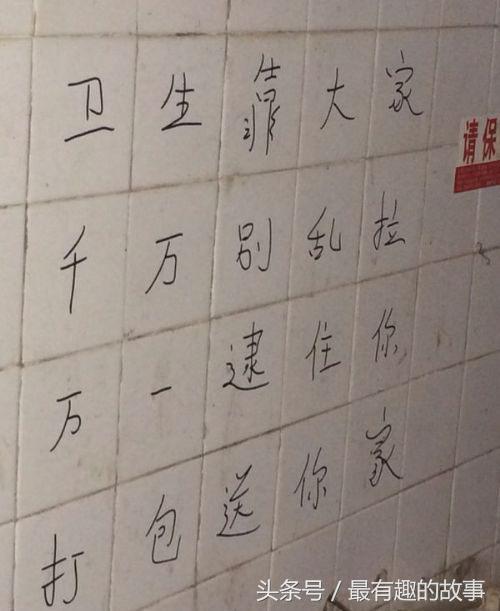 卫生靠大家
请保
千万别乱拉
万一逮住你
打包送你家
头条号/最有趣的故事